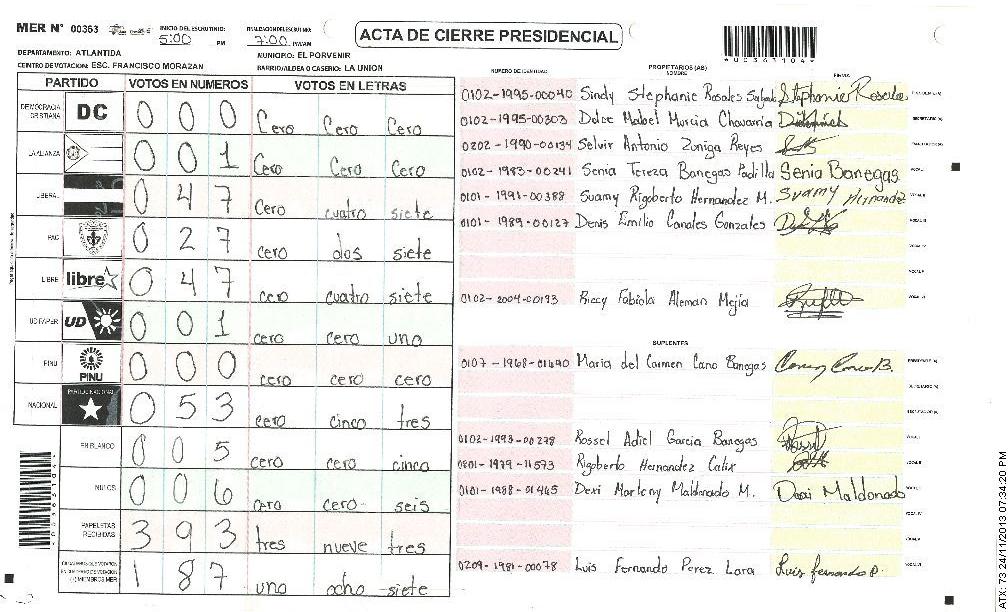 MER N° 00363 INICIO DEL ESCRUTINIO: 5:00 PM FINALIZACION ESCRUTINIO: 7:00 PM/AM
ACTA DE CIERRE PRESIDENCIAL
*00363104*
DEPARTAMENTO: ATLANTIDA MUNICIPIO: EL PORVENIR
CENTRO DE VOTACION: ESC. FRANCISCO MORAZAN BARRIO/ALDEA O CASERIO: LA UNION
PARTIDO VOTOS EN NUMEROS VOTOS EN LETRAS
DEMOCRACIA CRISTIANA DC 0 0 0 Cero Cero Cero
LA ALIANZA 0 0 1 Cero Cero Cero
LIBERAL 0 4 7 Cero cuatro siete
PAC 0 2 7 cero dos siete
LIBRE libre 0 4 7 cero cuatro siete
UD FAPER UD 0 0 1 cero cero uno
PINU PINU 0 0 0 cero cero cero
NACIONAL PARTIDO NACIONAL 0 5 3 cero cinco tres
EN BLANCO 0 0 5 cero cero cinco
NULOS 0 0 6 cero cero seis
PAPELETAS RECIBIDAS 3 9 3 tres nueve tres
1 8 7 uno ocho siete
NUMERO DE IDENTIDAD PROPIETARIOS (AS) NOMBRE FIRMA
0102-1995-00040 Sindy Stephanie Rosales Stephanie Rosales
0102-1995-00303 Dolce Mabel Murcia Chavarria
0202-1990-00134 Selvir Antonio Zuniga Reyes
0102-1983-00241 Senia Tereza Banegas Padilla Senia Banegas
0101-1991-00388 Suamy Rigoberto Hernandez M. Suamy Hernandez
0101-1989-00127 Denis Emilio Canales Gonzales
0102-2004-00193 Riccy Fabiola Aleman Mejia
SUPLENTES
0107-1968-01690 Maria del Carmen Cano Banegas
0102-1993-00278 Rossel Adiel Garcia Banegas
0801-1979-11573 Rigoberto Hernandez Calix
0101-1988-01465 Dexi Marleny Maldonado M. Dexi Maldonado
0209-1981-00078 Luis Fernando Perez Lara Luis fernando P.
*00363104*
ATX: 73 24/11/2013 07:34:20 PM